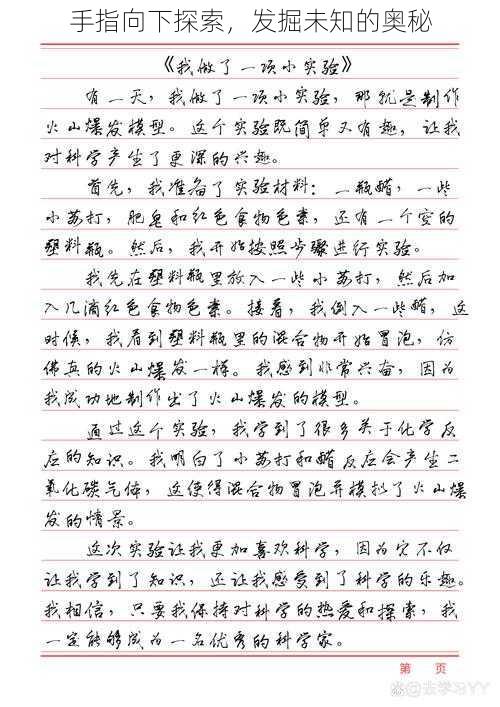 手指向下探索，发掘未知的奥秘
《我做了一项小实验》
有一天，我做了一项小实验，那就是制作
火山爆发模型。这个实验既简单又有趣，让我
对科学产生了更深的兴趣。
首先，我准备了实验材料：一瓶醋，一些
小苏打，肥皂和红色食物色素，还有一个空的
塑料瓶。然后，我开始按照步骤进行实验。
我先在塑料瓶里放入一些小苏打，然后加
入几滴红色食物色素。接着，我倒入一些醋，这
时候，我看到塑料瓶里的混合物开始冒泡，仿
佛真的火山爆发一样。我感到非常兴奋，因为
我成功地制作出了火山爆发的模型。
通过这个实验，我学到了很多关于化学反
应的知识。我明白了小苏打和醋反应会产生二
氧化碳气体，这使得混合物冒泡并模拟了火山爆
发的情景。
这次实验让我更加喜欢科学，因为它不仅
让我学到了知识，还让我感受到了科学的乐趣。
我相信，只要我保持对科学的热爱和探索，我
一定能够成为一名优秀的科学家。
第 页
@去学习YY